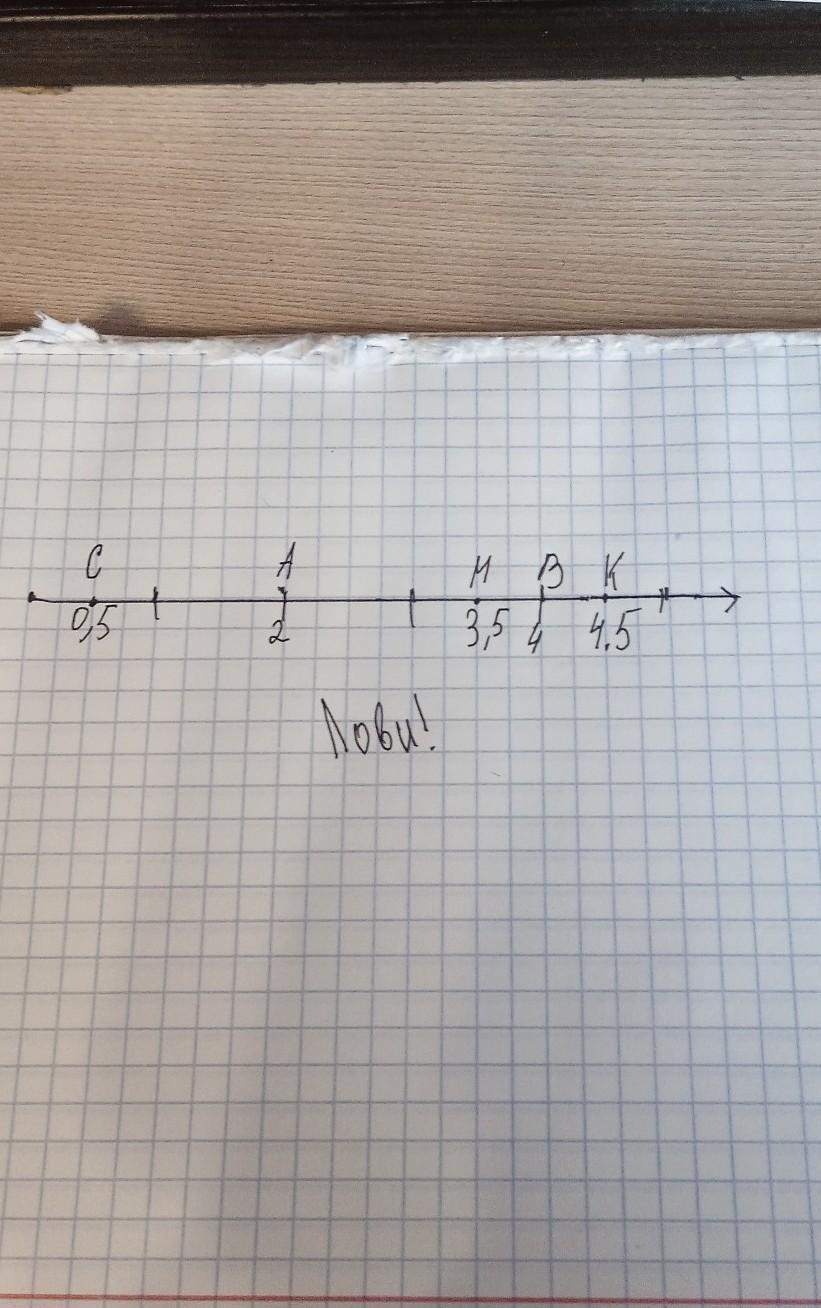 С А М В К
0,5 2 3,5 4 4.5
Лови!